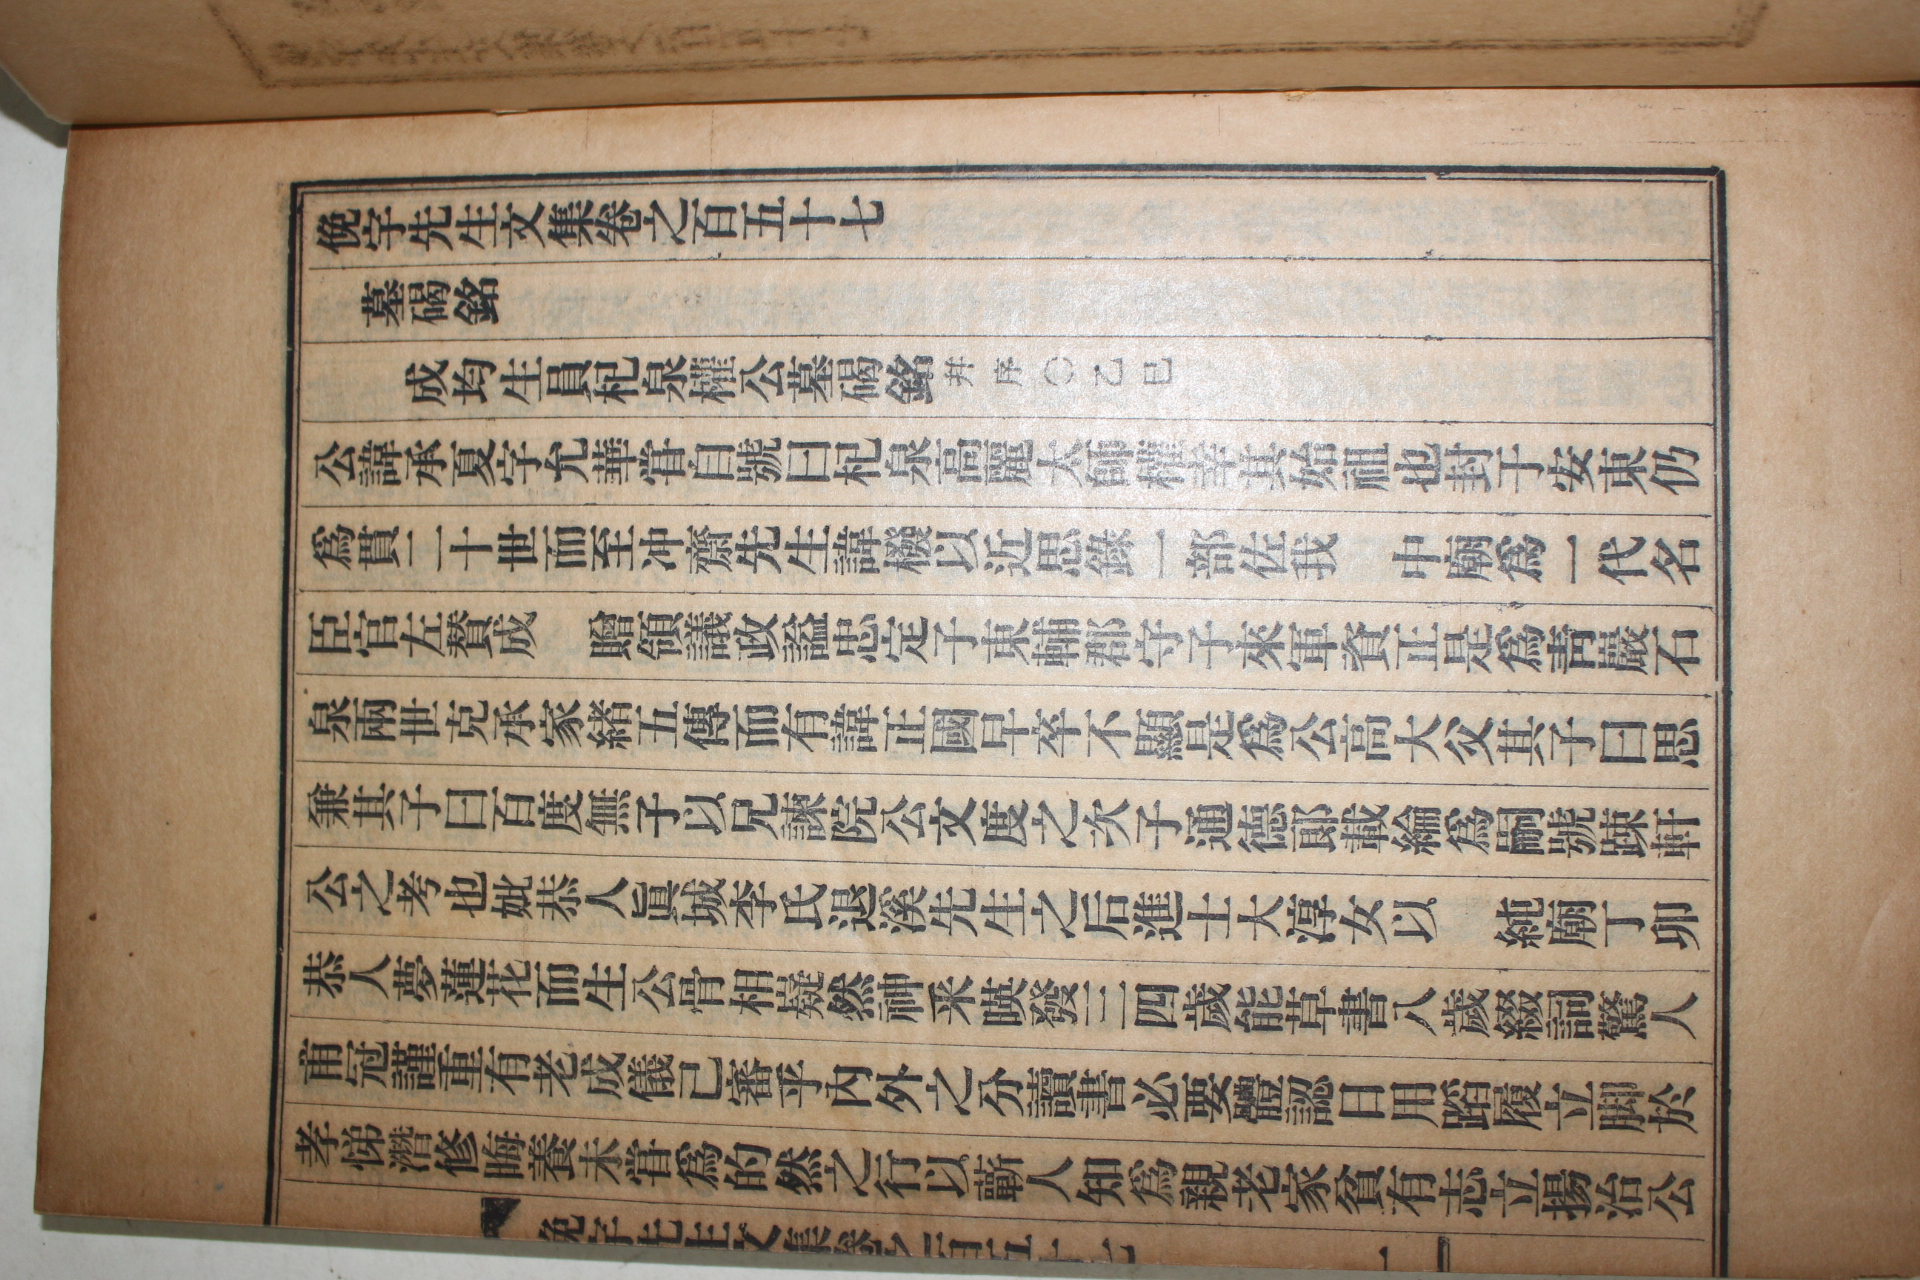 俛宇先生文集卷之百五十七
墓碣銘
成均生員杞泉權公墓碣銘 幷序○乙巳
公諱承夏字允華嘗自號曰杞泉高麗太師權幸其始祖也封于安東仍
爲貫二十世而至冲齋先生諱橃以近思錄一部佐我 中廟爲一代名
臣官左贊成 贈領議政謚忠定子東輔郡守子來軍資正是爲靑巖石
泉兩世克承家緖五傳而有諱正國早卒不顯是爲公高大父其子曰思
兼其子曰百度無子以兄諫院公文度之次子通德郞載綸爲嗣號踈軒
公之考也妣恭人眞城李氏退溪先生之后進士大淳女以 純廟丁卯
恭人夢蓮花而生公骨相嶷然神采暎發三四歲能草書八歲綴詞驚人
甫冠謹重有老成儀已審乎內外之分讀書必要體認日用蹈履立脚於
孝悌潛修晦養未嘗爲的然之行以蘄人知爲親老家貧有志立揚治公
俛宇先生文集卷之百五十七 一